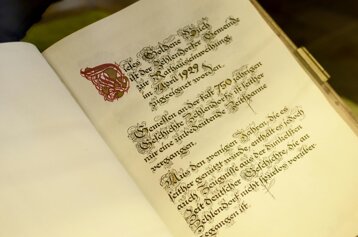 Dieses Goldene Buch
ist der Zehlendorfer Gemeinde
zur Rathauseinweihung
im April 1929
zugeeignet worden.
Gemessen an der fast 750 jährigen
Geschichte Zehlendorfs, ist seither
nur eine unbedeutende Zeitspanne
vergangen.
Aus den wenigen Jahren, die es
seither genützt wurde, enthält es jedoch
auch Zeugnisse aus der dunkelsten
Zeit deutscher Geschichte, die an
Zehlendorf nicht spurlos vorüber-
gegangen ist.